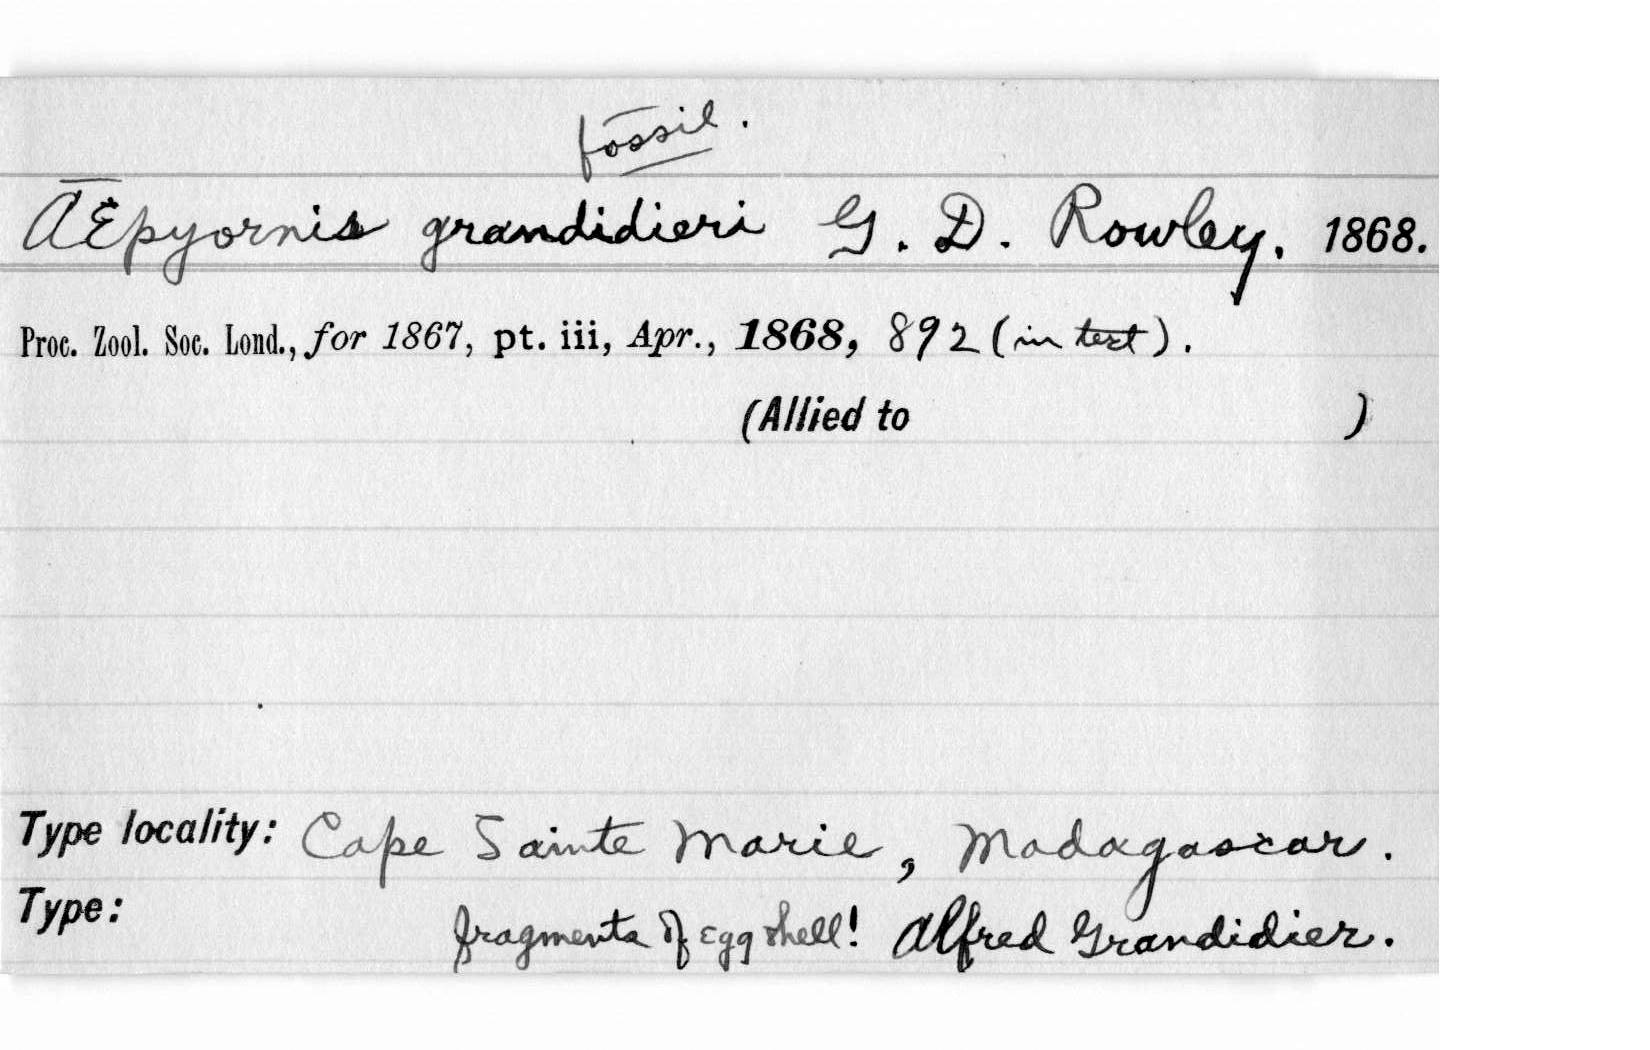 fossil.
Æpyornis grandidieri G. D. Rowley, 1868.
Proc. Zool. Soc. Lond., for 1867, pt. iii, Apr., 1868, 892 (in text).
(Allied to )
Type locality: Cape Sainte Marie, Madagascar.
Type: fragments of egg shell! Alfred Grandidier.